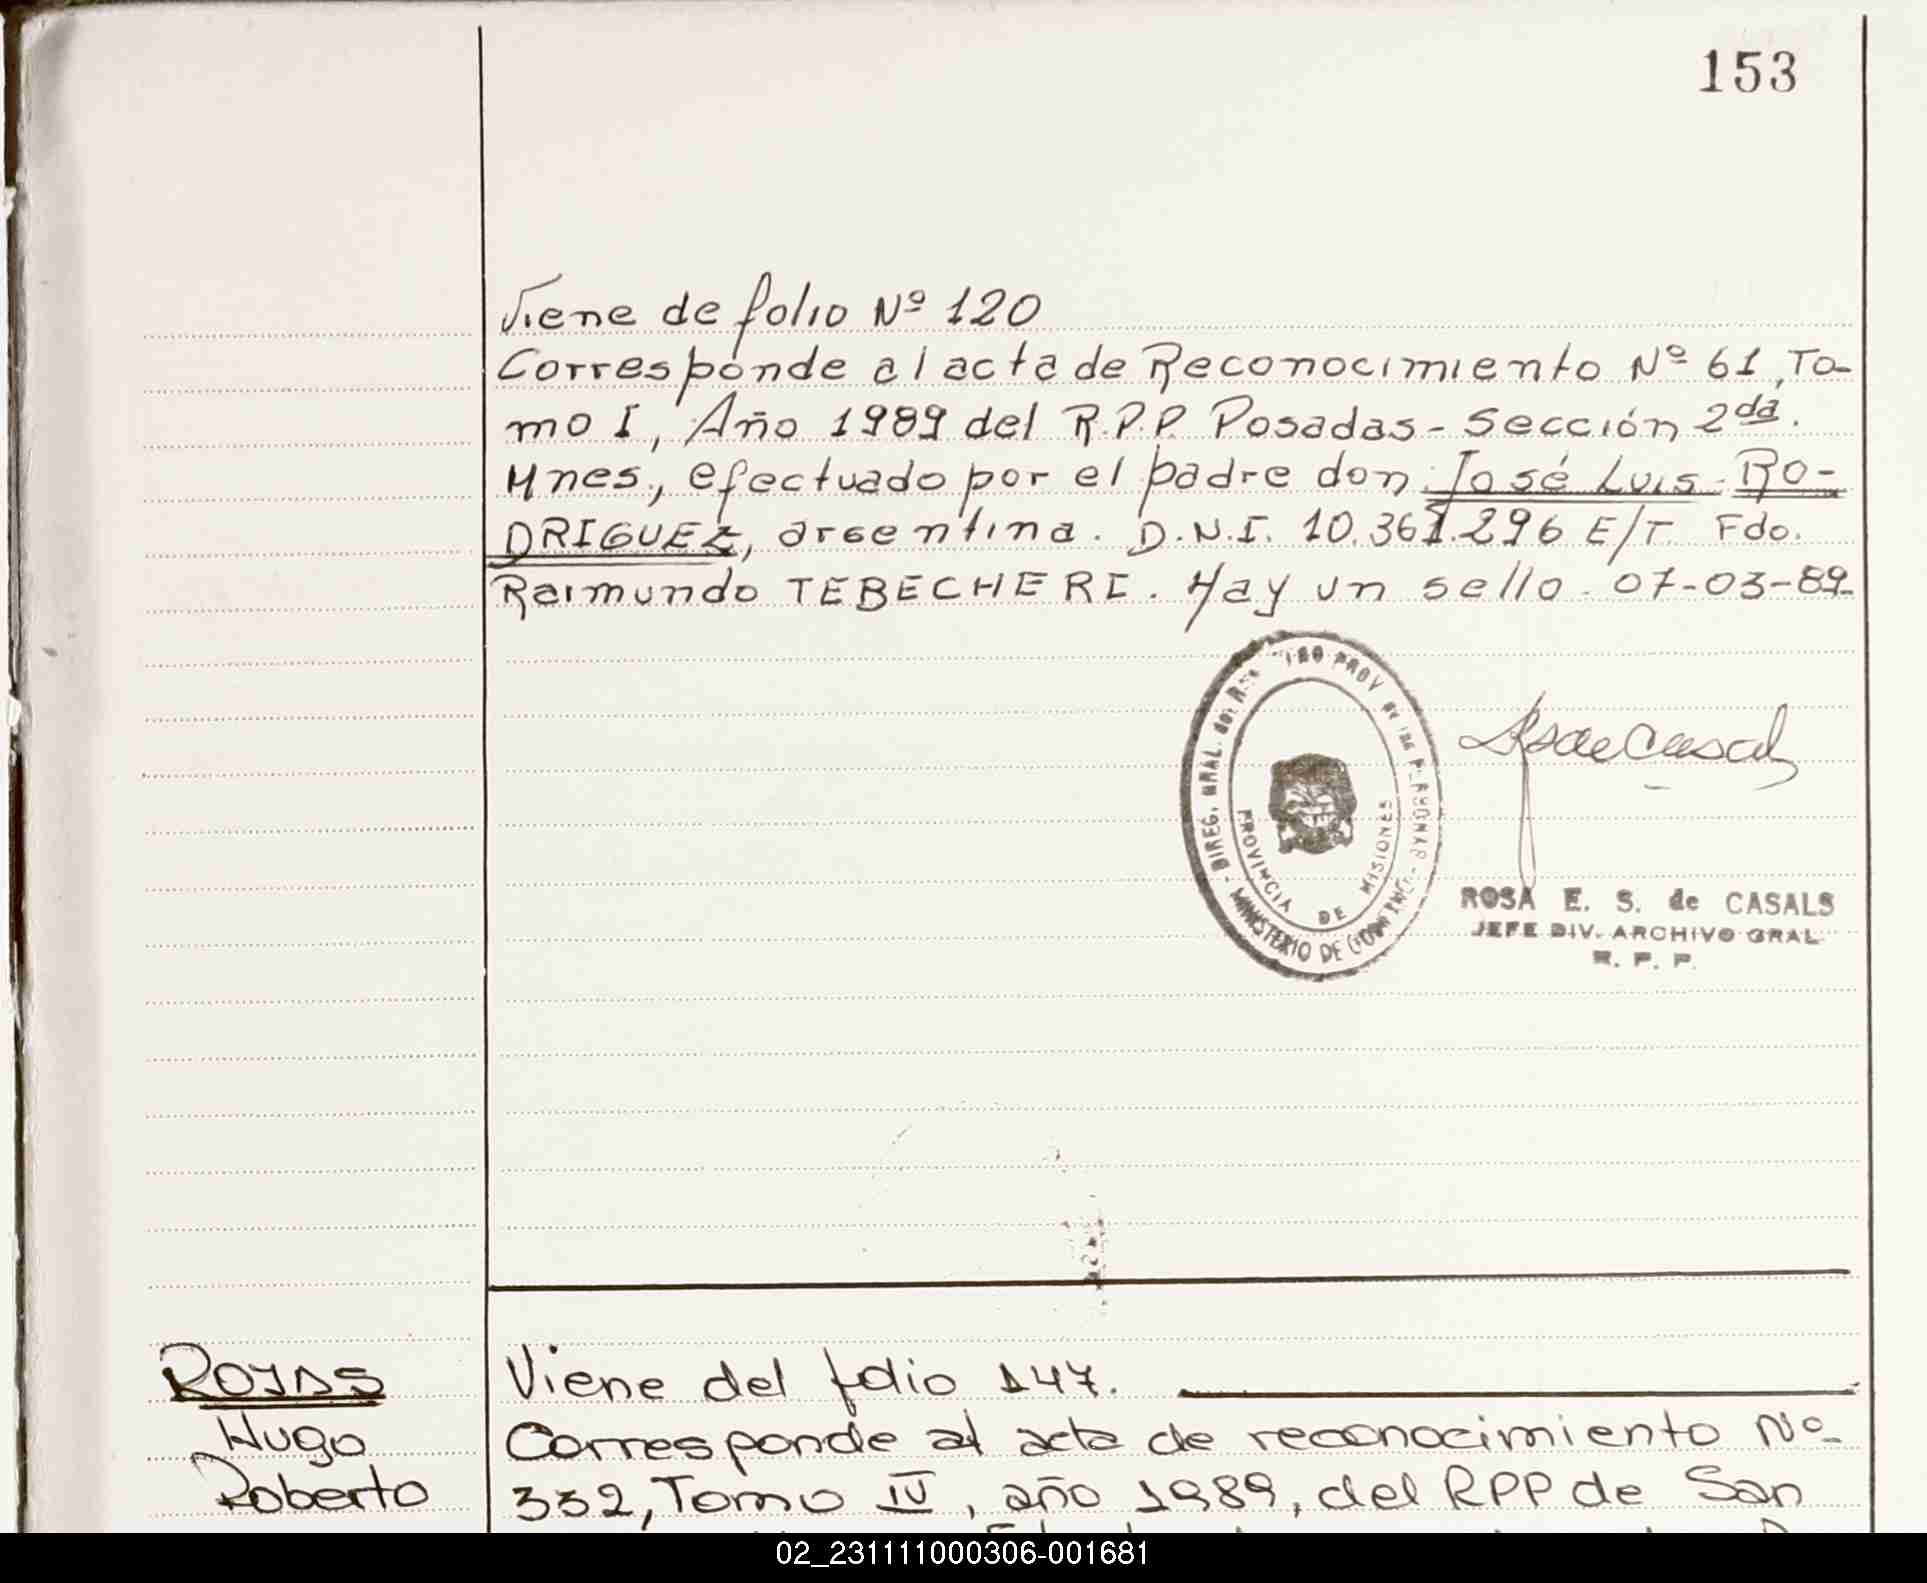 153
Viene de folio Nº 120
Corresponde al acta de Reconocimiento Nº 61, To-
mo I, Año 1989 del R.P.P. Posadas - Sección 2da.
Mnes., efectuado por el padre don José Luis RO-
DRIGUEZ, argentina. D.N.I. 10.361.296 E/T. Fdo.
Raimundo TEBECHERI. Hay un sello. 07-03-89-
PROVINCIA DE MISIONES
MINISTERIO DE
ROSA E. S. de CASALS
JEFE DIV. ARCHIVO GRAL
R. P. P.
ROJAS
Hugo
Roberto
Viene del folio 147.
Corresponde al acta de reconocimiento Nº
332, Tomo IV, año 1989, del RPP de San
02_231111000306-001681